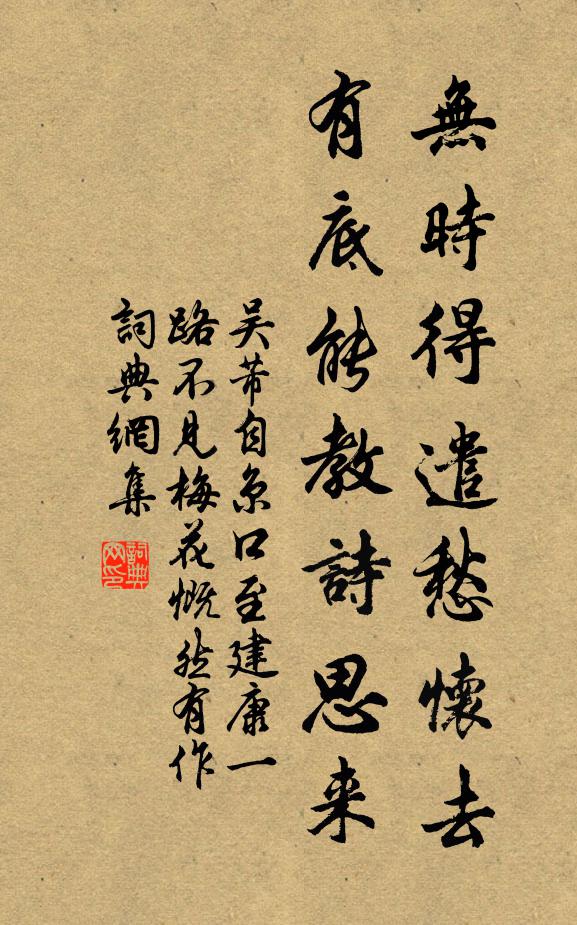 無時得遣愁懷去
有底能教詩思来
吴芾自京口至建康一
路不見梅花慨然有作
詞典網集
詞典
网印